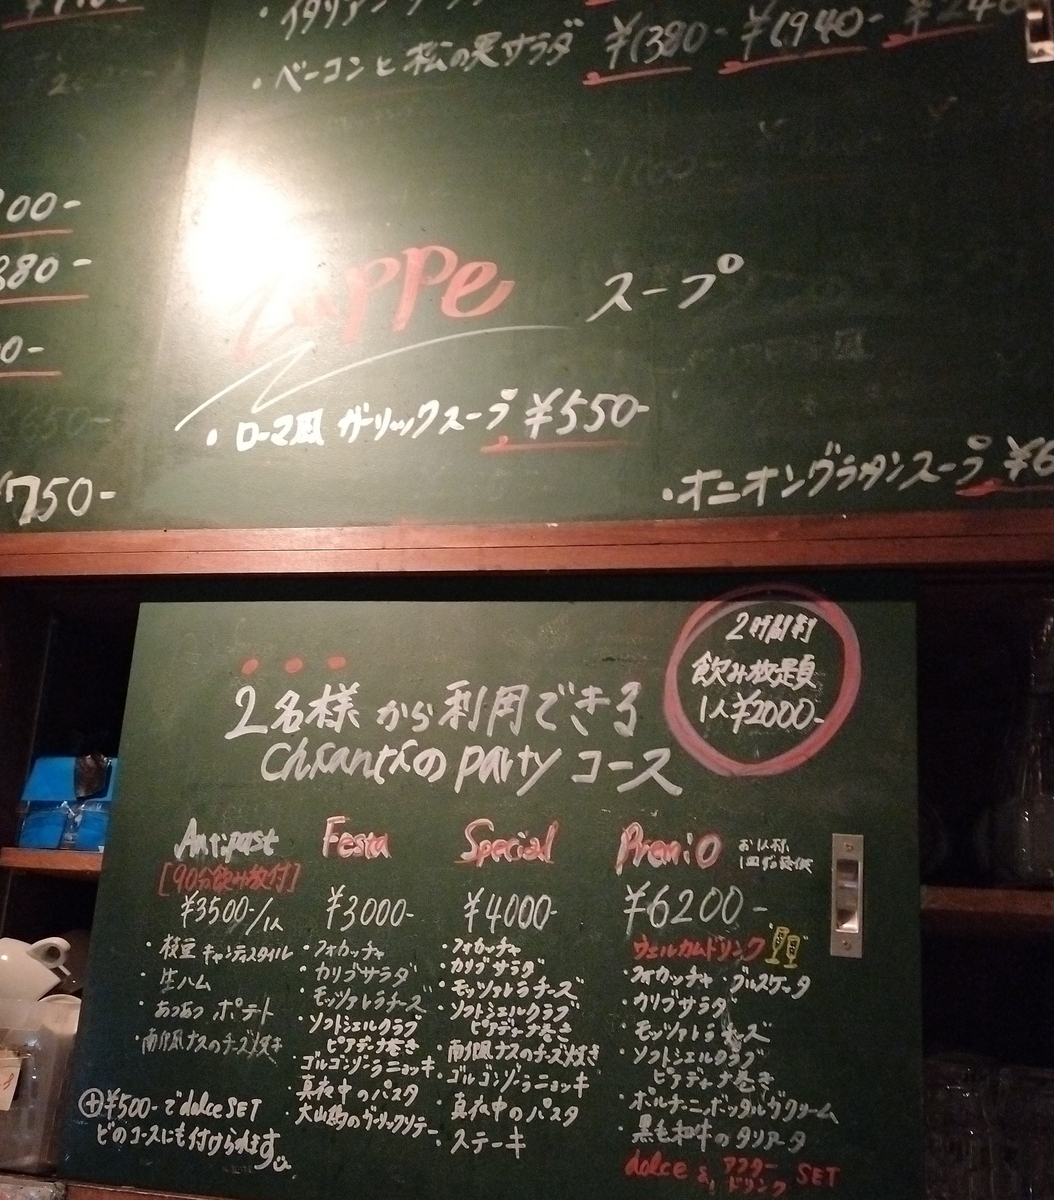 ・ベーコンと松の実サラダ ¥1380- ¥1940-
00-
880-
0-
¥750-
Zuppe スープ
・ローマ風 ガーリックスープ ¥550-
・オニオングラタンスープ ¥6
2時間制
飲み放題
1人¥2000-
2名様から利用できる
chiantiのpartyコース
Antipast
[90分飲み放付]
¥3500-/1人
・枝豆 キャンティスタイル
・生ハム
・あつあつ ポテト
・南伊風ナスのチーズ焼き
Festa
¥3000-
・フォカッチャ
・カリブサラダ
・モッツァレラチーズ
・ソフトシェルクラブ
ピアディーナ巻き
・ゴルゴンゾーラニョッキ
・真夜中のパスタ
・大山鶏のガーリックソテー
Special
¥4000-
・フォカッチャ
・カリブサラダ
・モッツァレラチーズ
・ソフトシェルクラブ
ピアディーナ巻き
・南伊風ナスのチーズ焼き
・ゴルゴンゾーラニョッキ
・真夜中のパスタ
・ステーキ
Premio
¥6200-
ウェルカムドリンク
・フォカッチャ・ブルスケッタ
・カリブサラダ
・モッツァレラチーズ
・ソフトシェルクラブ
ピアディーナ巻き
・ポルチーニポッタルガクリーム
・黒毛和牛のタリアータ
dolce & アフタードリンク SET
⊕¥500-でdolce SET
どのコースにも付けられます